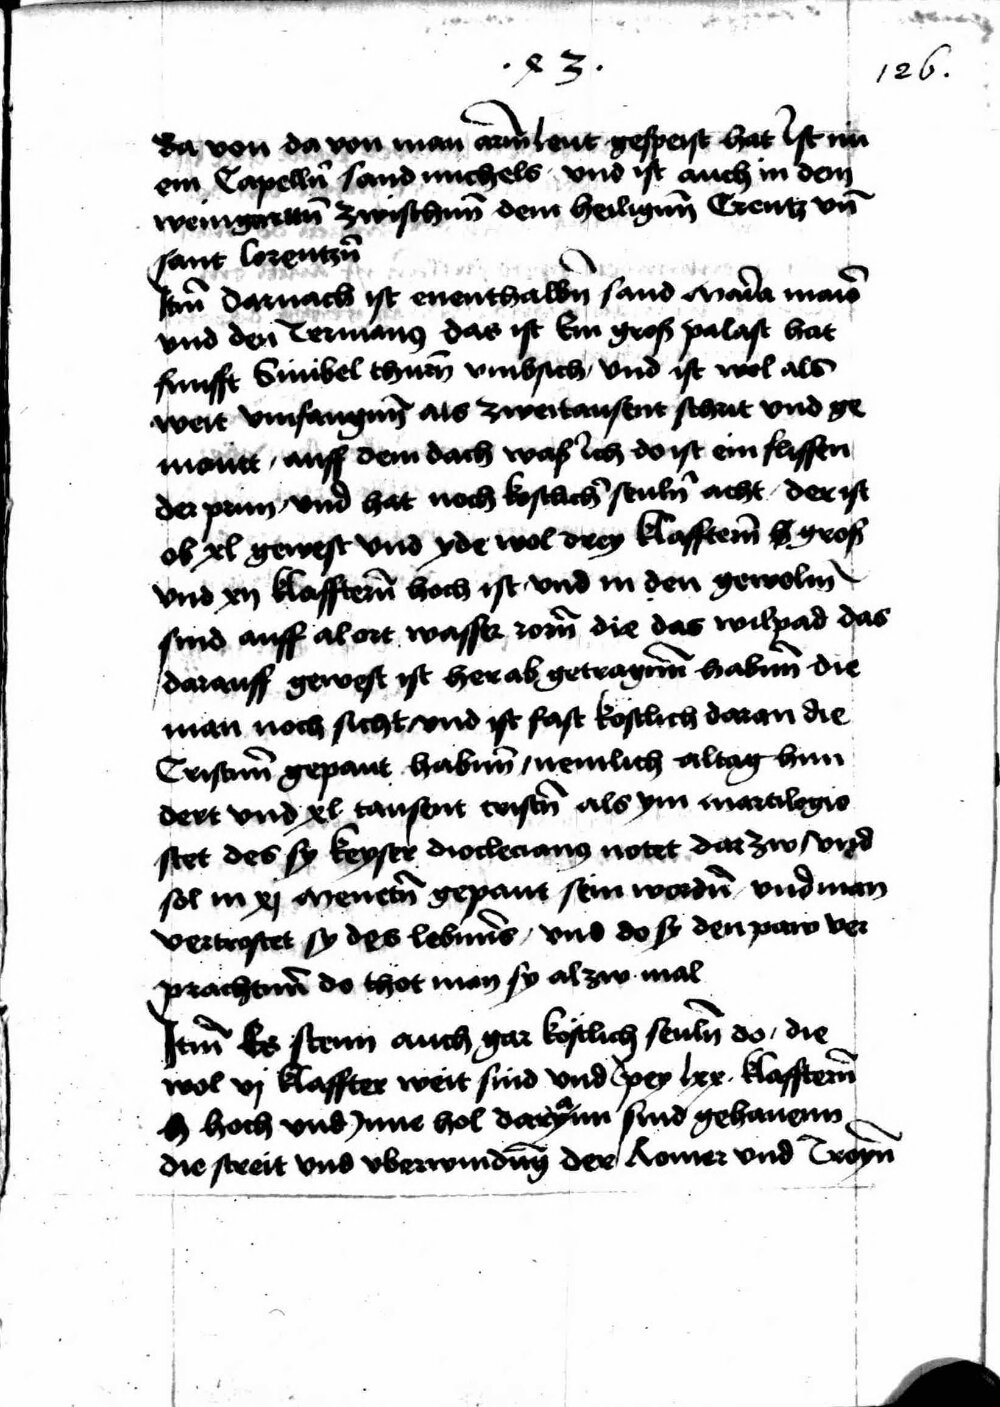 · 8 3 ·
126.
Ba von da von man arm̄ leut gespeist hat Ist nu
ein Capelln̄ sand michels und ist auch in dem
weingartn̄ zwischnn̄ dem heilignn̄ Creutz vn̄
sant lorentzn̄
Itm̄ darnach ist enenthalbn̄ sand Maria maio᷑
vnd den Termanus das ist Ein groß palast hat
funfft Sinibel thurn̄ vmbsich / vnd ist wol als
weit vmfangnn̄ als zweitausent schrit vnd ge
mautt / auff dem dach waß Ich do ist ein flissen
der prun / vnd hat noch kostlich᷑ seuln̄ acht / der ist
ob xl gewest vnd yde wol drey klafftern̄ groß
vnd xij klafftern̄ hoch ist / vnd in den gewolm̄
sind auff al ort wasser rorn̄ die das wilpad das
darauff gewest ist herab getragnn̄ habnn̄ die
man noch sicht / vnd ist fast köstlich daran die
Cristnn̄ gepaut habnn̄ / nemlich altag hun
dert vnd xl tausent cristn̄ als ym martilogio
stet des sy keyser dioclecianus notet darzw / vnd
sol in xj Menetn̄ gepaut sein wordn̄ / vnd man
vertrostet sy des lebnns̄ / vnd do sy den paw ver
prachtnn̄ do thot man sy alzw mal
Itm̄ Es stenn auch gar köstlich seuln̄ do / die
wol vj klaffter weit sind vnd pey lxx · klafftern̄
hoch vnd Inne hol daryann sind gehauenn
die streit vnd vberwindn̄g der Romer vnd Troyn̄